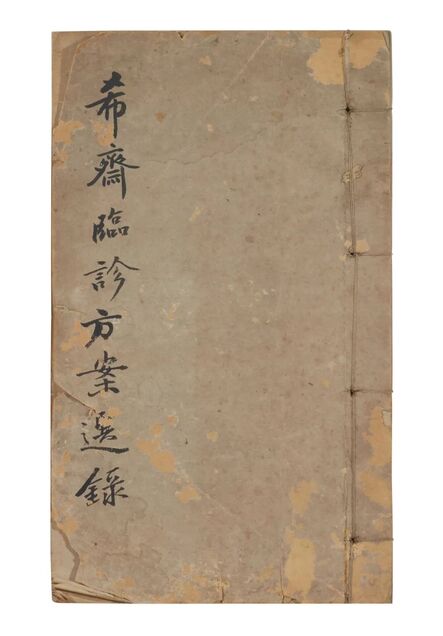 希齋臨診方案選錄